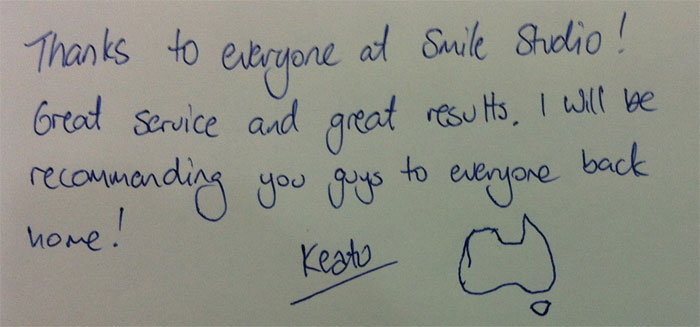 Thanks to everyone at Smile Studio!
Great service and great results. I will be
recommending you guys to everyone back
home!
Keato